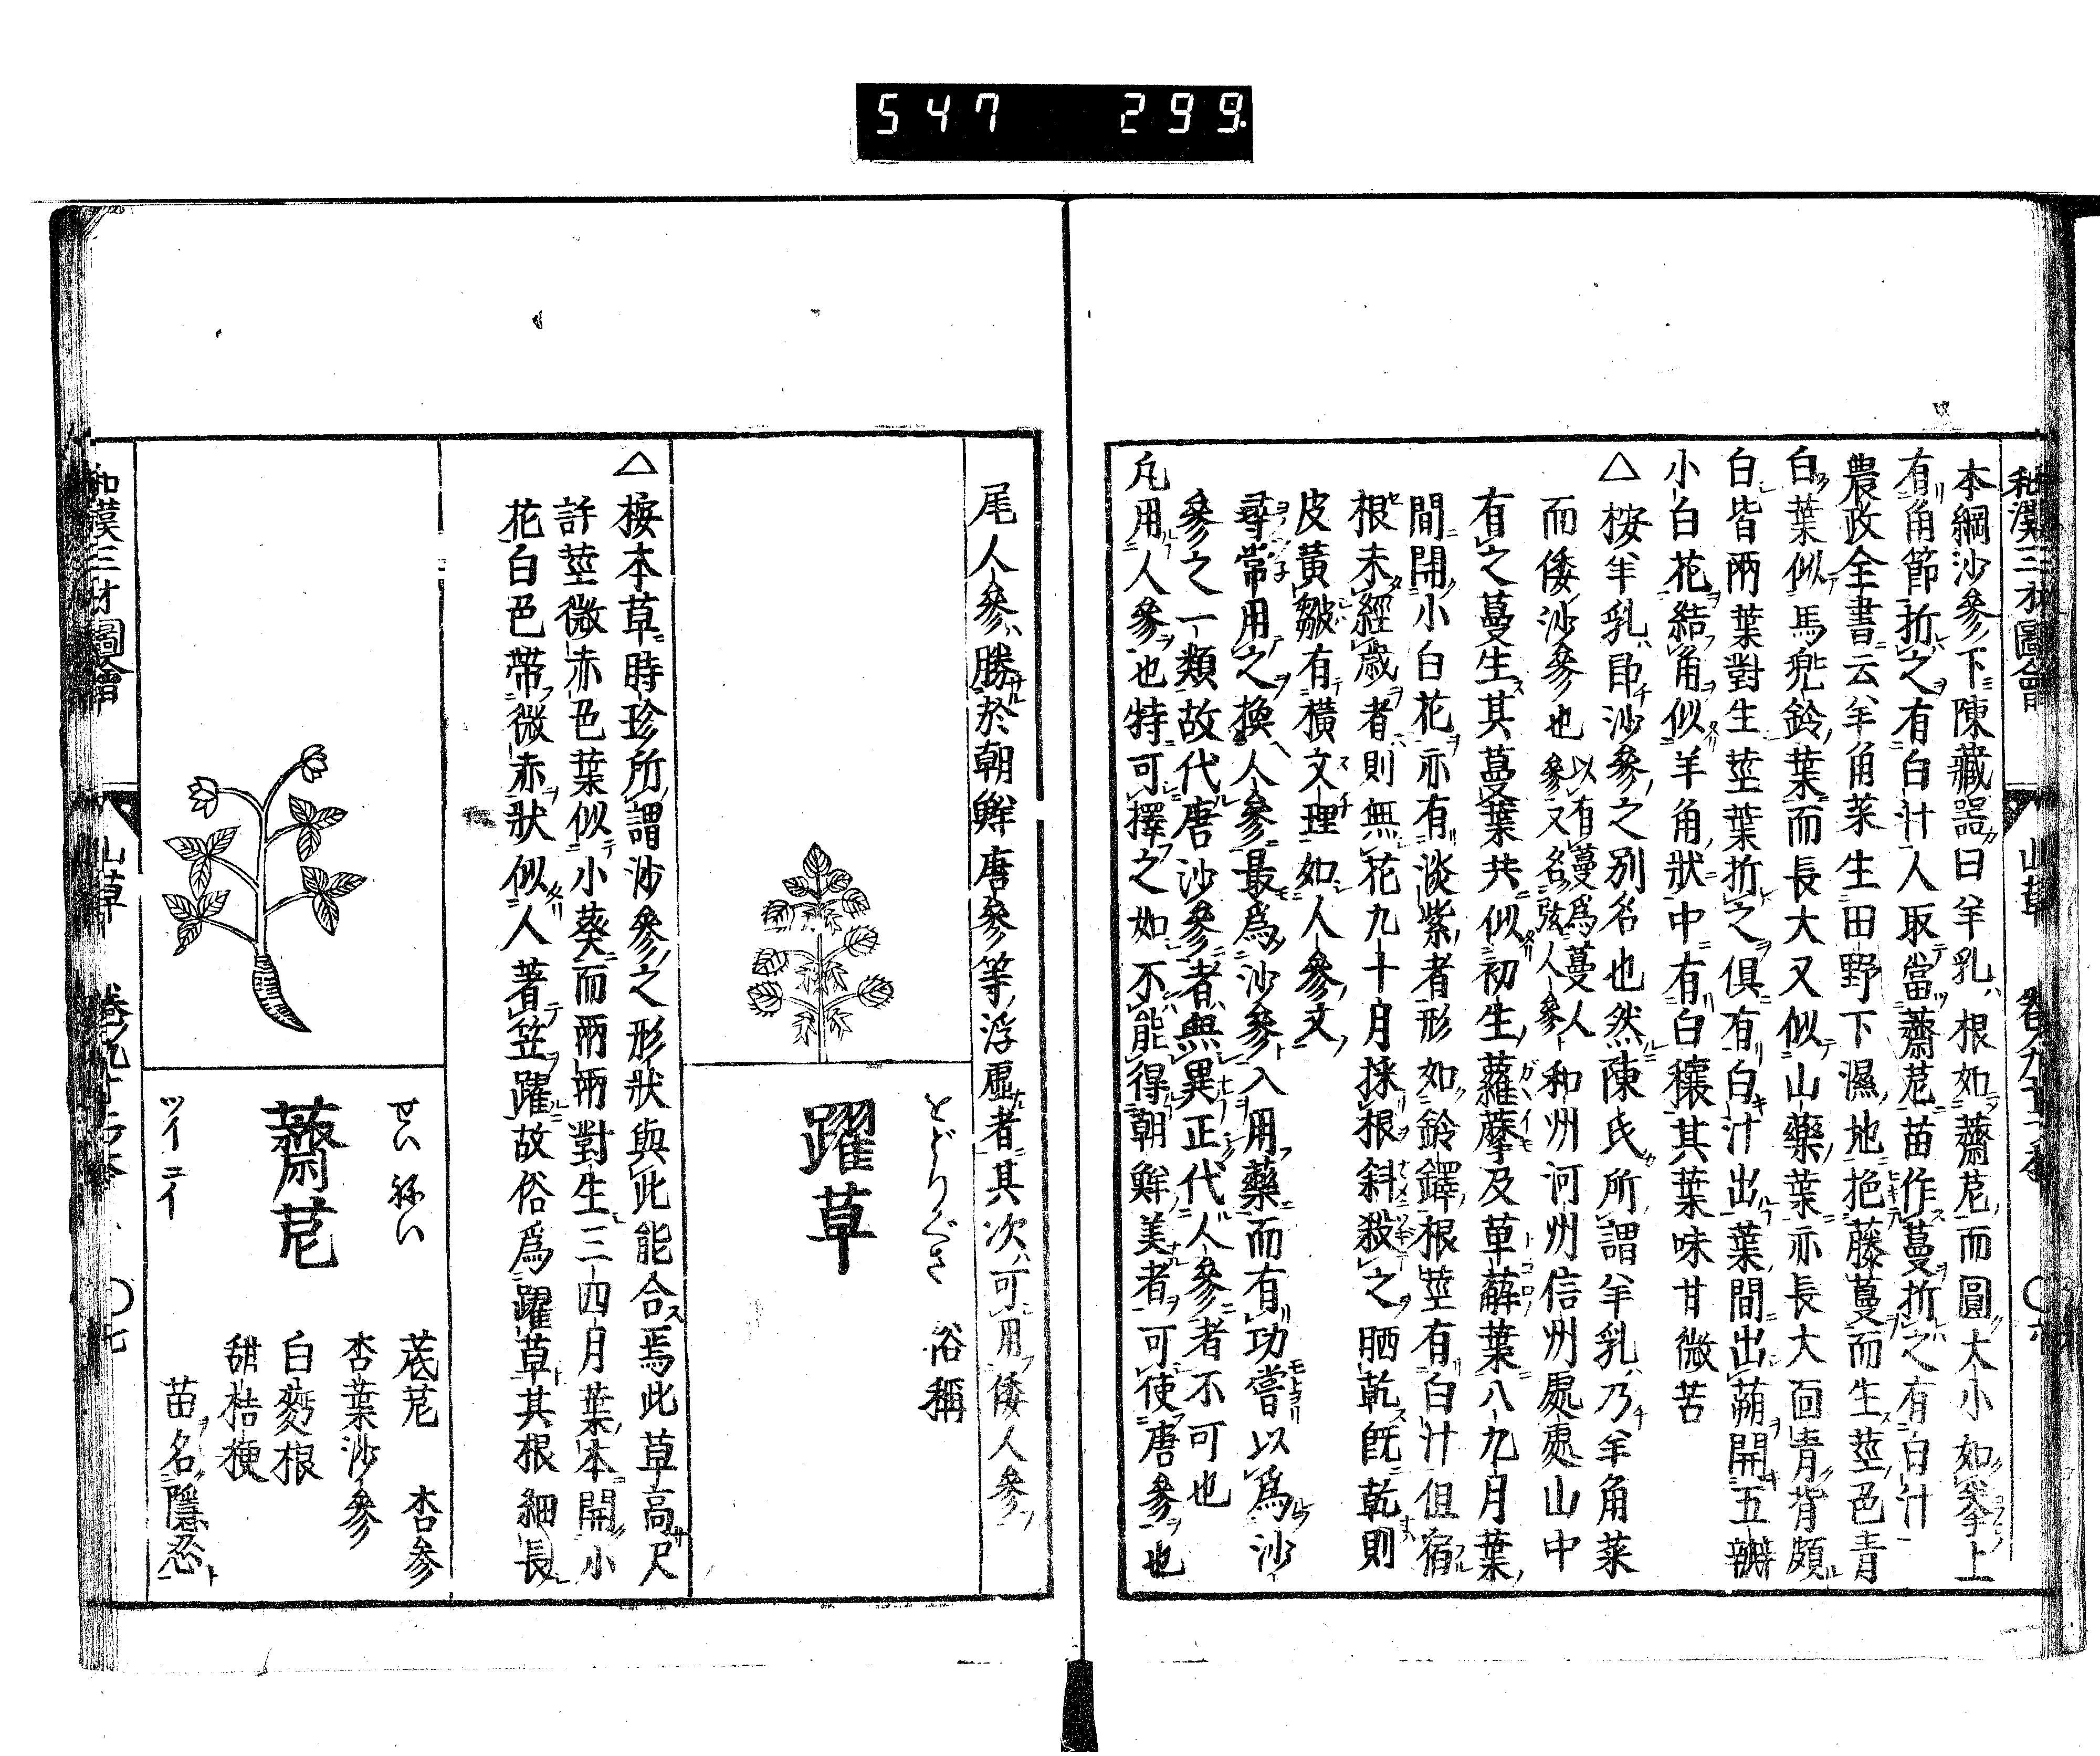 547 299
和漢三才圖會 山草
本綱沙參下陳藏器曰羊乳根如薺苨而圓大小如拳上
有角節折之有白汁人取當薺苨苗作蔓折之有白汁
農政全書云羊角菜生田野下濕地拖藤蔓而生莖色青
白葉似馬兜鈴葉而長大又似山藥葉亦長大面青背頗
白皆兩葉對生莖葉折之俱有白汁出葉間出蒴開五瓣
小白花結角似羊角狀中有白穰其葉味甘微苦
△按羊乳卽沙參之別名也然陳氏所謂羊乳乃羊角菜
而倭沙參也以有蔓爲蔓人參又名弦人參和州河州信州處處山中
有之蔓生其蔓葉共似初生蘿藦及萆薢葉八九月葉
間開小白花亦有淡紫者形如鈴鐸根莖有白汁但宿
根未經歲者則無花九十月採根斜殺之晒乾旣乾則
皮黃皺有橫文理如人參文
尋常用之換人參最爲沙參入用藥而有功嘗以爲沙
參之一類故代唐沙參者無異正代人參者不可也
凡用人參也特可擇之如不能得朝鮮美者可使唐參也
尾人參勝於朝鮮唐參等浮虛者其次可用倭人參
をどりぐさ 俗稱
躍草
△按本草時珍所謂沙參之形狀與此能合焉此草高尺
許莖微赤色葉似小葵而兩兩對生三四月葉本開小
花白色帶微赤狀似人著笠躍故俗爲躍草其根細長
せい ねい
薺苨
ツイ ニイ
苨 杏參
杏葉沙參
白麪根
甜桔梗
苗名隱忍
和漢三才圖會 山草 七